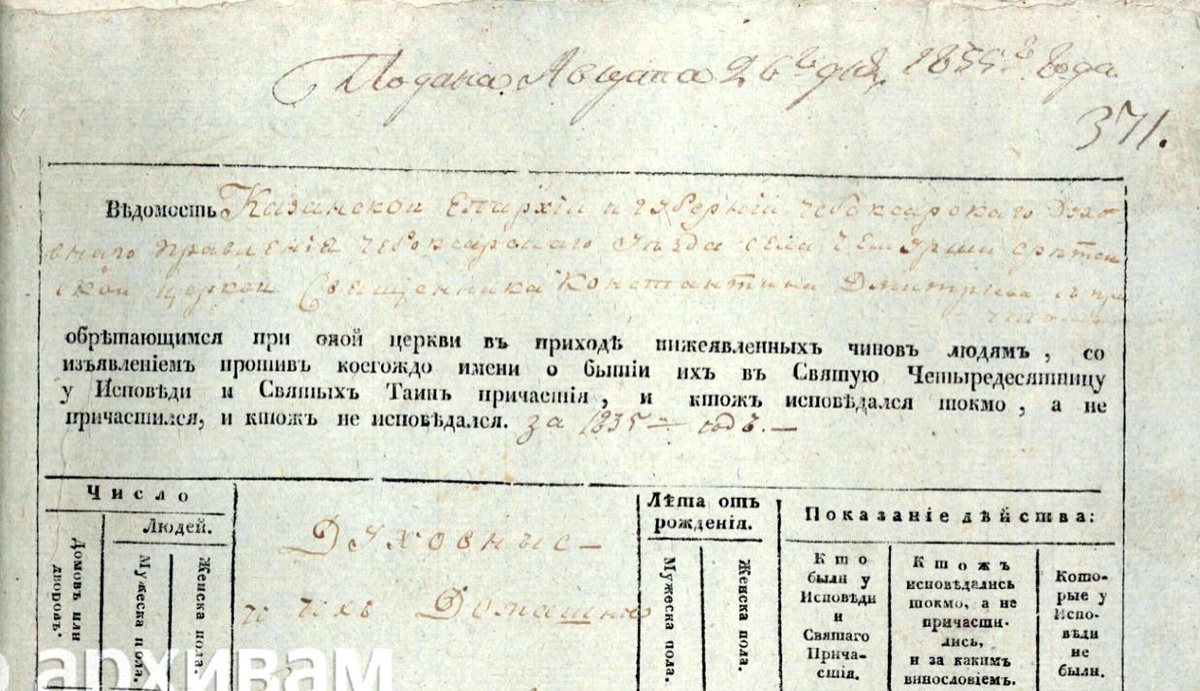 Подана Августа 26го дня 1835го Года
371.
Вѣдомость Казанской Епархіи и губерніи чебоксарскаго Духо-
внаго Правленія чебоксарскаго уѣзда села чемурши срѣтен
ской церкви Священника Константина Дмитріева съ при
чтомъ
обрѣтающимся при оной церкви въ приходѣ нижеявленныхъ чиновъ людямъ, со
изъявленіемъ противъ коегождо имени о бытіи ихъ въ Святую Четыредесятницу
у Исповѣди и Святыхъ Таинъ причастія, и ктожъ исповѣдался токмо, а не
причастился, и ктожъ не исповѣдался. за 1835 годъ.
Число
Людей.
Домовъ или дворовъ.
Мужеска пола.
Женска пола.
Духовные
и ихъ Домашніе
Лѣта отъ
рожденія.
Мужеска пола.
Женска пола.
Показаніе дѣйства:
Кто
были у
Исповѣди
и
Святаго
Прича-
стія.
Ктожъ
исповѣдались
токмо, а не
причасти-
лись,
и за какимъ
винословіемъ.
Кото-
рые у
Испо-
вѣди
не
были.
о архивам